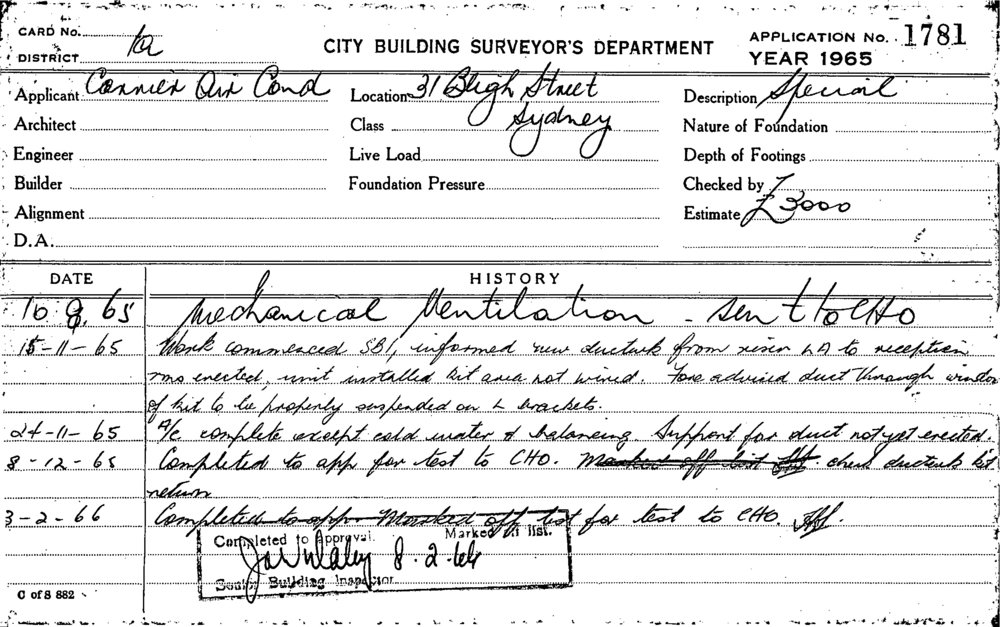 CARD No.
DISTRICT
CITY BUILDING SURVEYOR'S DEPARTMENT
APPLICATION No. 1781
YEAR 1965
Applicant Carrier Air Cond
Location 31 Bligh Street
Sydney
Description Special
Architect
Class
Nature of Foundation
Engineer
Live Load
Depth of Footings
Builder
Foundation Pressure
Checked by
Alignment
Estimate £3000
D.A.
DATE HISTORY
16 9. 65 Mechanical Ventilation - sent to CHO
15-11-65 Work commenced SBI, informed new ductwk from riser to reception
rms erected, unit installed kit area not wired. advised duct through window
of kit to be properly suspended on L brackets.
24-11-65 A/c complete except cold water & balancing. Support for duct not yet erected.
8-12-65 Completed to app for test to CHO. Marked off list check ductwk kit
return
3-2-66 Completed to app. Marked off list for test to CHO.
Completed to approval. Marked off list.
8.2.66
Senior Building Inspector
C of S 882